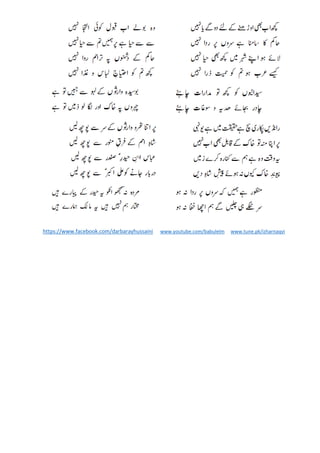 کچھ اب بھی اوڑھنے کے لئے دو گے یا نہیں
وہ بولے اب قبول کوئی التجا نہیں
حاکم کا سامنا ہے سروں پر ردا نہیں
سے سے حیا ہے پر ہمیں تم سے حیا نہیں
لائے ہو اپنے شہر میں کچھ بھی حیا نہیں
حاکم کے ہونٹوں پہ ترا ہم روا نہیں
کیسے عرب ہو تم کو حمیت ذرا نہیں
کچھ تم کو احتیاج لباس و غذا نہیں
سیدانیوں کو کچھ تو مدارات چاہئے
بوسیدہ وارثوں کے لہو سے ہمیں تو ہے
چادر بجائے ہدیہ و سوغات چاہئے
چہروں پہ خاک اور لگا لو زمیں تو ہے
رانڈیں پکاری سچ ہے حقیقت میں ہے یونہی
پر اتنا ثمرہ وارثوں کے سر سے پوچھ لیں
پر اپنا منہ تو خاک کے قابل بھی اب نہیں
شاہِ امم کے فرقِ منور سے پوچھ لیں
یہ وقت وہ ہے ہم سے کنارہ کرے زمیں
عباس ابن حیدر صفدر سے پوچھ لیں
پیوند خاک کیوں نہ ہوئے پیش شاہِ دیں
دربار جانے کو علی اکبر سے پوچھ لیں
منظور ہے ہمیں کہ سروں پر ردا نہ ہو
مردہ نہ سمجھو انکو یہ حیدر کے پیارے ہیں
سر ننگے ہی چلیں گے ہم اچھا خفا نہ ہو
مختار ہم نہیں ہیں یہ مالک ہمارے ہیں
https://www.facebook.com/darbarayhussaini www.youtube.com/babuleim www.tune.pk/izharnaqvi